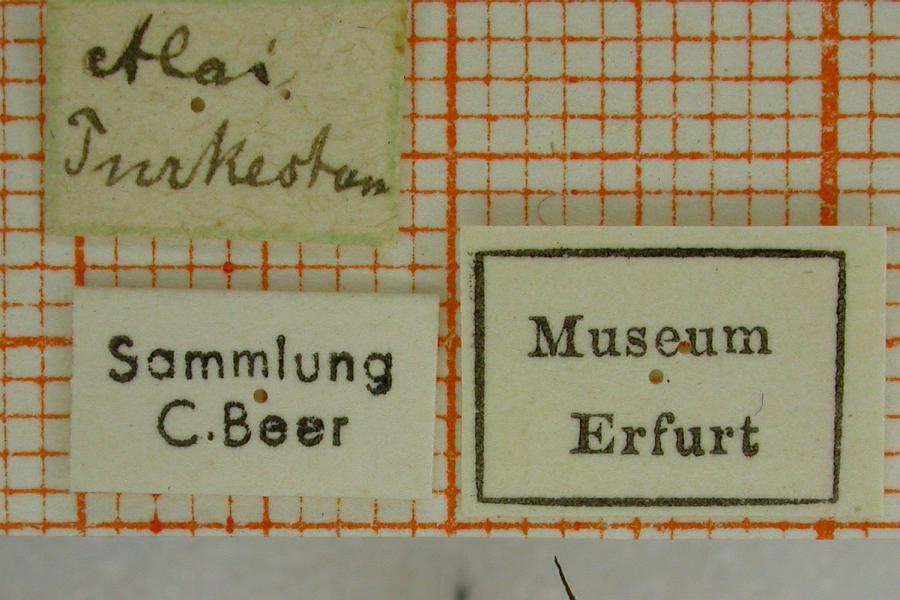 Alai.
Turkestan
Sammlung
C. Beer
Museum
Erfurt